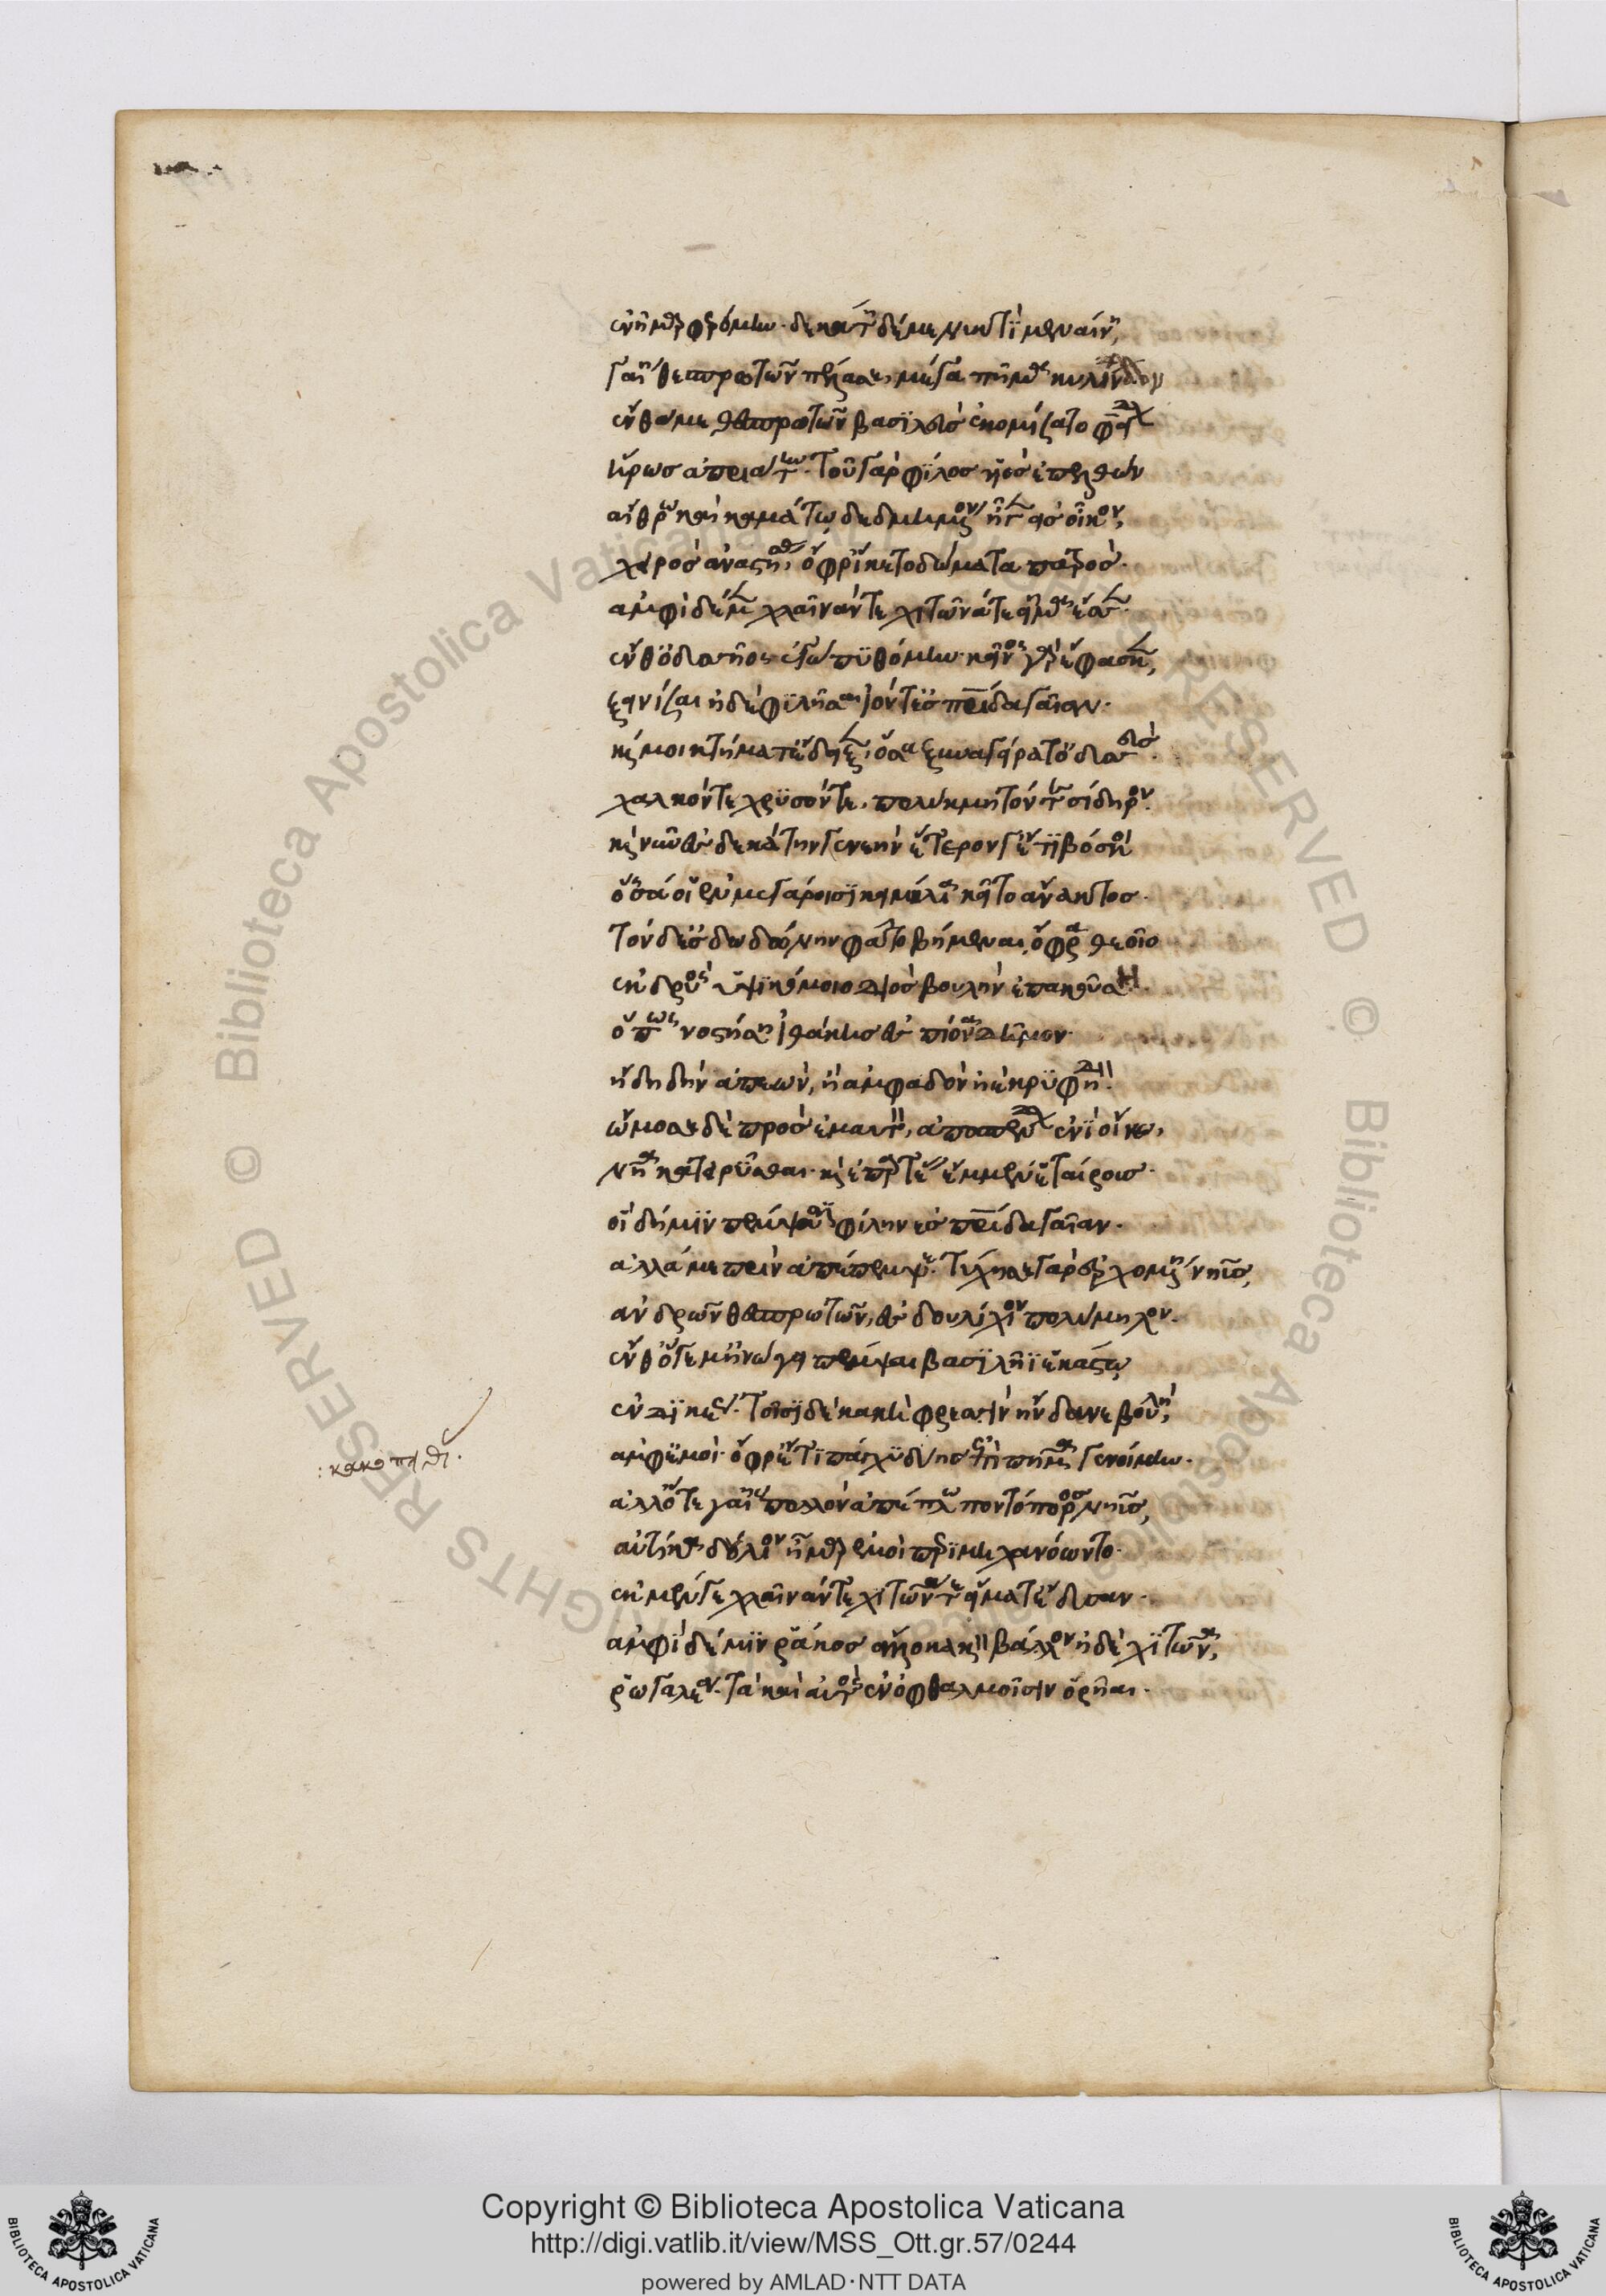 ἐννῆμαρ φερόμην· δεκάτη δέ με νυκτὶ μελαίνη,
γαίη θεσπρωτῶν πέλασε, μέγα κῦμα κυλίνδον
ἔνθα με θεσπρωτῶν βασϊλεὺς ἐκομίσατο φείδων
ἥρως ἀπριάτην. τοῦ γὰρ φϊλος υἱὸς ἐπελθὼν
αἴθρω καὶ καμάτω δεδμημένον ἦγεν ἐς οἶκον,
χειρὸς ἀναστήσας, ὄφρ' ἵκετο δώματα πατρός.
ἀμφὶ δέ με χλαῖνάν τε χιτῶνά τε εἵματα ἕσσεν.
ἔνθ' ὀδυσῆος ἐγὼ πϋθόμην· κεῖνος γὰρ ἔφασκεν,
ξεινίσαι ἠδὲ φϊλῆσαι ἰόντ' ἐς πατρίδα γαῖαν.
καί μοι κτήματ' ἔδειξεν, ὅσα ξυναγείρατ' ὀδυσσεύς.
χαλκόν τε χρϋσόν τε, πολύκμητόν τε σίδηρον.
καί νυ ἐς δεκάτην γενεὴν ἕτερον γ' ἔτϊ βόσκοι
ὅσσά οἱ ἐν μεγάροισϊ κειμήλια κεῖτο ἄνακτος.
τὸν δ' ἐς δωδώνην φάτο βήμεναι, ὄφρα θεοῖο
ἐκ δρυὸς ὑψϊκόμοιο διὸς βουλὴν ἐπακούση.
ὅππως νοστήση ἰθάκης ἐς πίονα δῆμον.
ἤδη δὴν ἀπεὼν, ἢ ἀμφαδὸν ἠὲ κρϋφηδόν.
ὤμοσε δὲ πρὸς ἔμ' αὐτὸν, ἀποσπένδων ἐνῒ οἴκω,
νῆα κατειρύσθαι· καὶ ἐπαρτέας ἔμμεν ἑταίρους.
οἳ δή μϊν πέμψουσϊ φίλην ἐς πατρίδα γαῖαν.
ἀλλά με πρὶν ἀπέπεμψε. τύχησε γὰρ ἐρχομένη νηῦς,
ἀνδρῶν θεσπρωτῶν, ἐς δουλίχιον πολύπυρον.
ἔνθ' ὅγε μ' ἠνώγει πέμψαι βασϊλῆϊ ἀκάστω
ἐνδϊκέως. τοῖσϊ δὲ κακὴ φρεσὶν ἥνδανε βουλὴ,
ἀμφ' ἐμοὶ· ὄφρ' ἔτϊ πάγχϋ δύης ἐπὶ πῆμα γενοίμην.
ἀλλ' ὅτε γαίης πολλὸν ἀπέπλω ποντοπόρος νηῦς,
αὐτίκα δούλιον ἦμαρ ἐμοὶ περϊμηχανόωντο.
ἐκ μέν γε χλαῖνάν τε χϊτῶνά τε εἵματ' ἔδυσαν.
ἀμφῒ δέ μϊν ῥάκος ἄλλο κακὸν βάλον ἠδὲ χϊτῶνα,
ῥωγαλέα. τὰ καὶ αὐτὸς ἐν ὀφθαλμοῖσιν ὅρηαι.
Copyright © Biblioteca Apostolica Vaticana
http://digi.vatlib.it/view/MSS_Ott.gr.57/0244
powered by AMLAD·NTT DATA